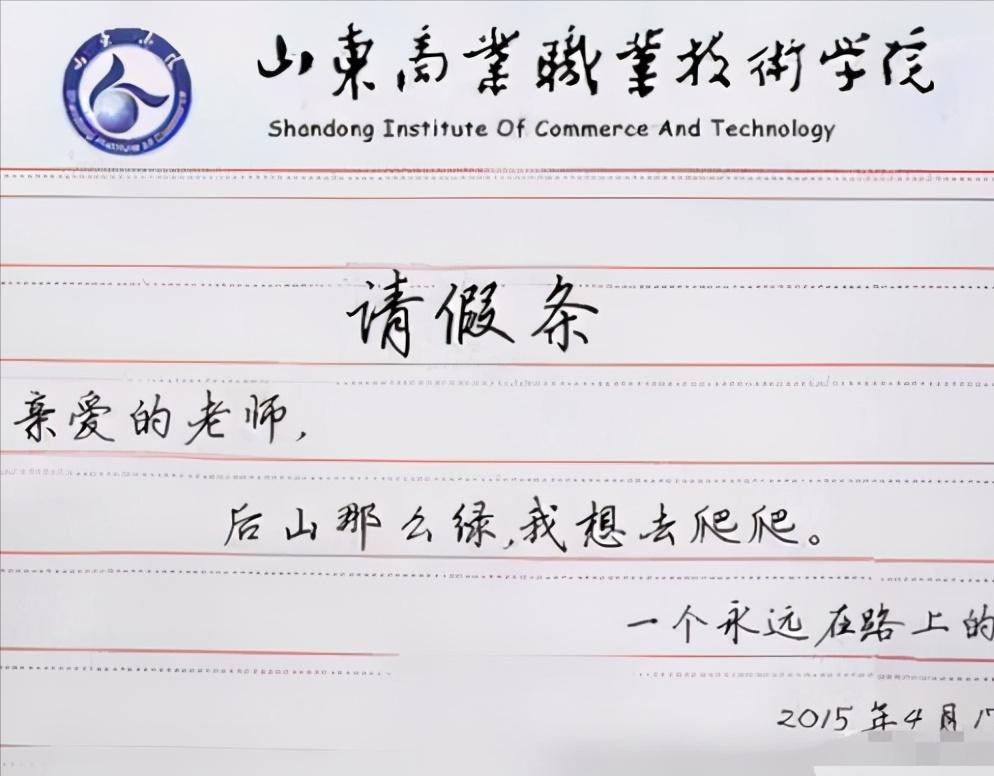 山東商業職業技術学院
Shandong Institute Of Commerce And Technology
请假条
亲爱的老师,
后山那么绿,我想去爬爬。
一个永远在路上的
2015年4月17